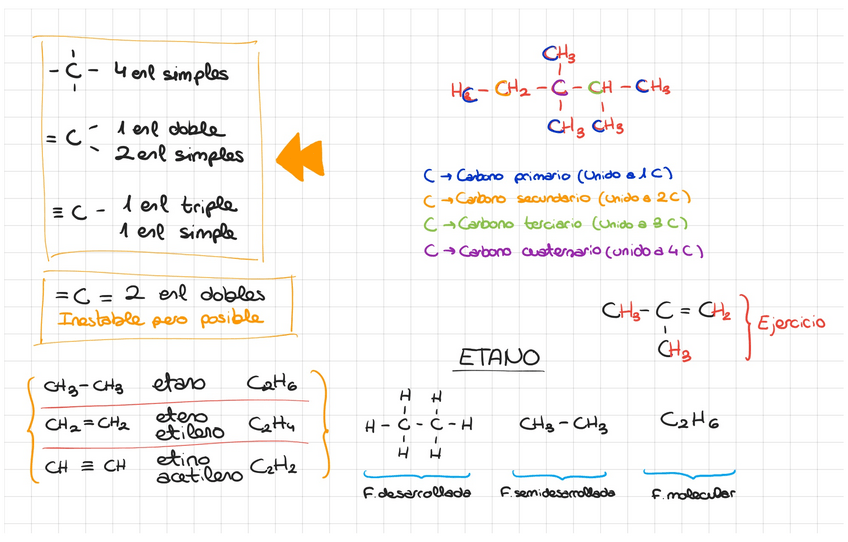 - C - 4 enl simples
= C 1 enl doble
2 enl simples
≡ C - 1 enl triple
1 enl simple
= C = 2 enl dobles
Inestable pero posible
CH3-CH3 etano C2H6
CH2=CH2 eteno C2H4
etileno
CH ≡ CH etino C2H2
acetileno
CH3
H3C - CH2 - C - CH - CH3
CH3 CH3
C → Carbono primario (Unido a 1 C)
C → Carbono secundario (unido a 2 C)
C → Carbono terciario (Unido a 3 C)
C → Carbono cuaternario (unido a 4 C)
CH3 - C = CH2 Ejercicio
CH3
ETANO
H H
H - C - C - H
H H
CH3 - CH3
C2H6
F. desarrollada
F. semidesarrollada
F. molecular